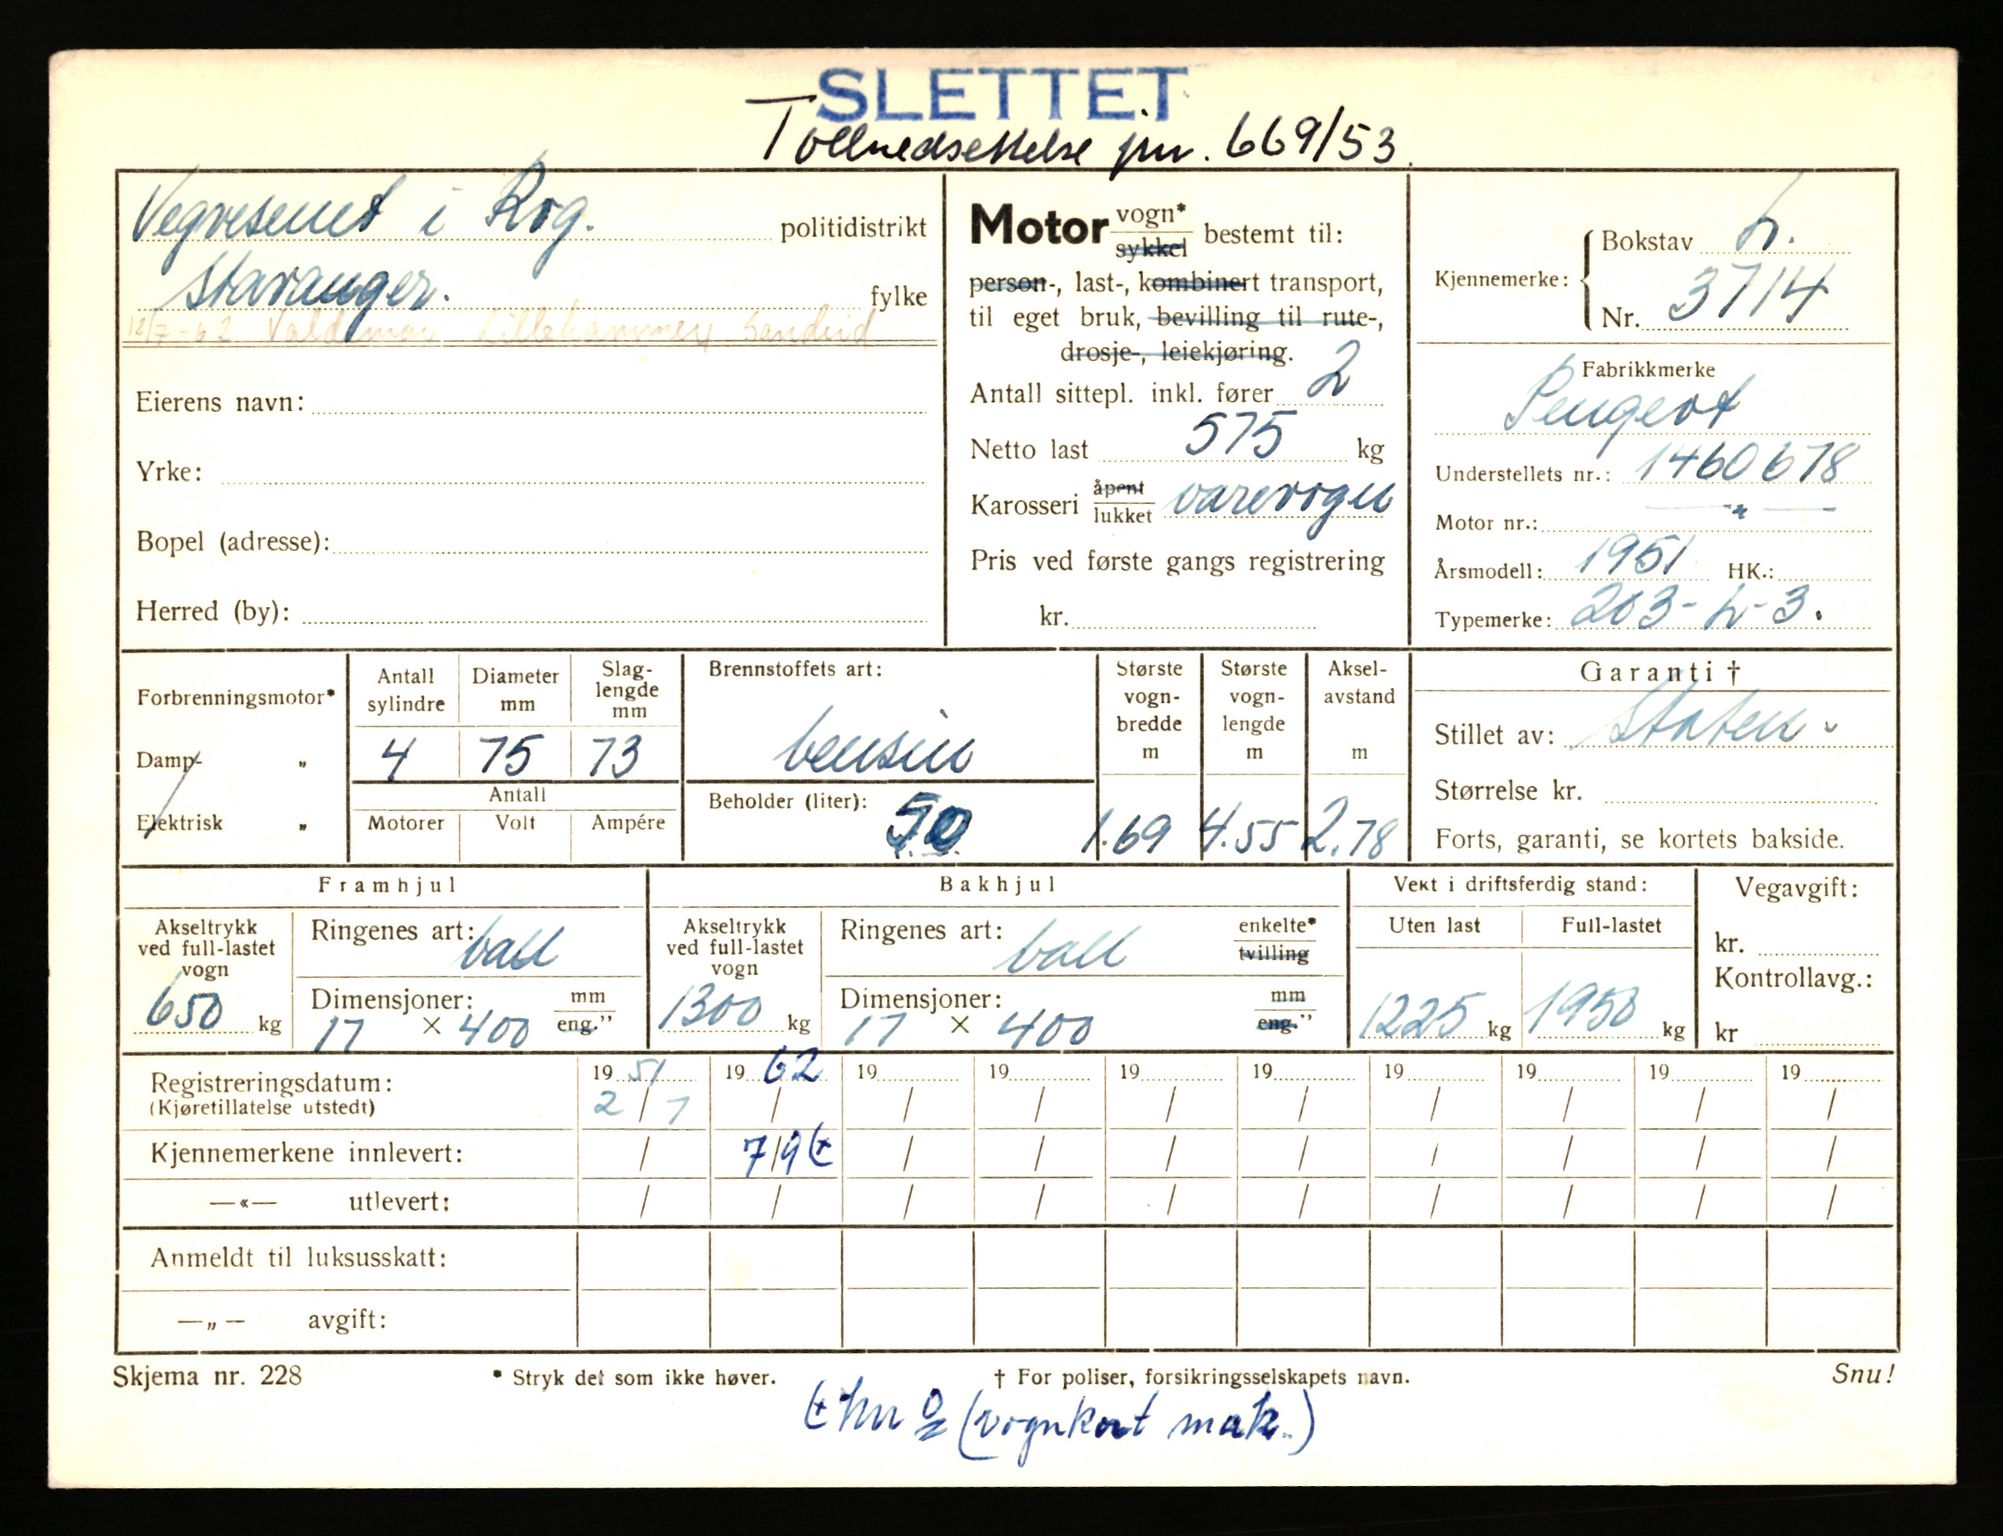 SLETTET
Tollnedsettelse jnr. 669/53.
Vegvesenet i Rog. politidistrikt
Stavanger. fylke
12/7-62 Valdemar Lillehammer Sandeid
Eierens navn:
Yrke:
Bopel (adresse):
Herred (by):
Motor vogn* sykkel bestemt til:
person-, last-, kombinert transport,
til eget bruk, bevilling til rute-,
drosje-, leiekjøring.
Antall sittepl. inkl. fører 2
Netto last 575 kg
Karosseri åpent lukket varevogn
Pris ved første gangs registrering
kr.
Kjennemerke: Bokstav L.
Nr. 3714
Fabrikkmerke
Peugeot
Understellets nr.: 1460678
Motor nr.: — " —
Årsmodell: 1951 HK.:
Typemerke: 203-L-3.
Forbrenningsmotor*
Damp- „
Elektrisk „
Antall sylindre Diameter mm Slaglengde mm
4 75 73
Antall
Motorer Volt Ampére
Brennstoffets art:
bensin
Beholder (liter): 50
Største vognbredde m Største vognlengde m Akselavstand m
1.69 4.55 2.78
Garanti †
Stillet av: Staten.
Størrelse kr.
Forts, garanti, se kortets bakside.
Framhjul
Akseltrykk ved full-lastet vogn
650 kg
Ringenes art: ball
Dimensjoner: mm eng.”
17 × 400
Bakhjul
Akseltrykk ved full-lastet vogn
1300 kg
Ringenes art: ball enkelte* tvilling
Dimensjoner: mm eng.”
17 × 400
Vekt i driftsferdig stand:
Uten last Full-lastet
1225 kg 1950 kg
Vegavgift:
kr.
Kontrollavg.:
kr
Registreringsdatum: 19 51 19 62 19 19 19 19 19 19 19 19
(Kjøretillatelse utstedt) 2/7 / / / / / / / / /
Kjennemerkene innlevert: / 7/9 / / / / / / / /
—«— utlevert: / / / / / / / / / /
Anmeldt til luksusskatt:
—„— avgift:
Skjema nr. 228 * Stryk det som ikke høver. † For poliser, forsikringsselskapets navn. Snu!
(vognkort mak.)